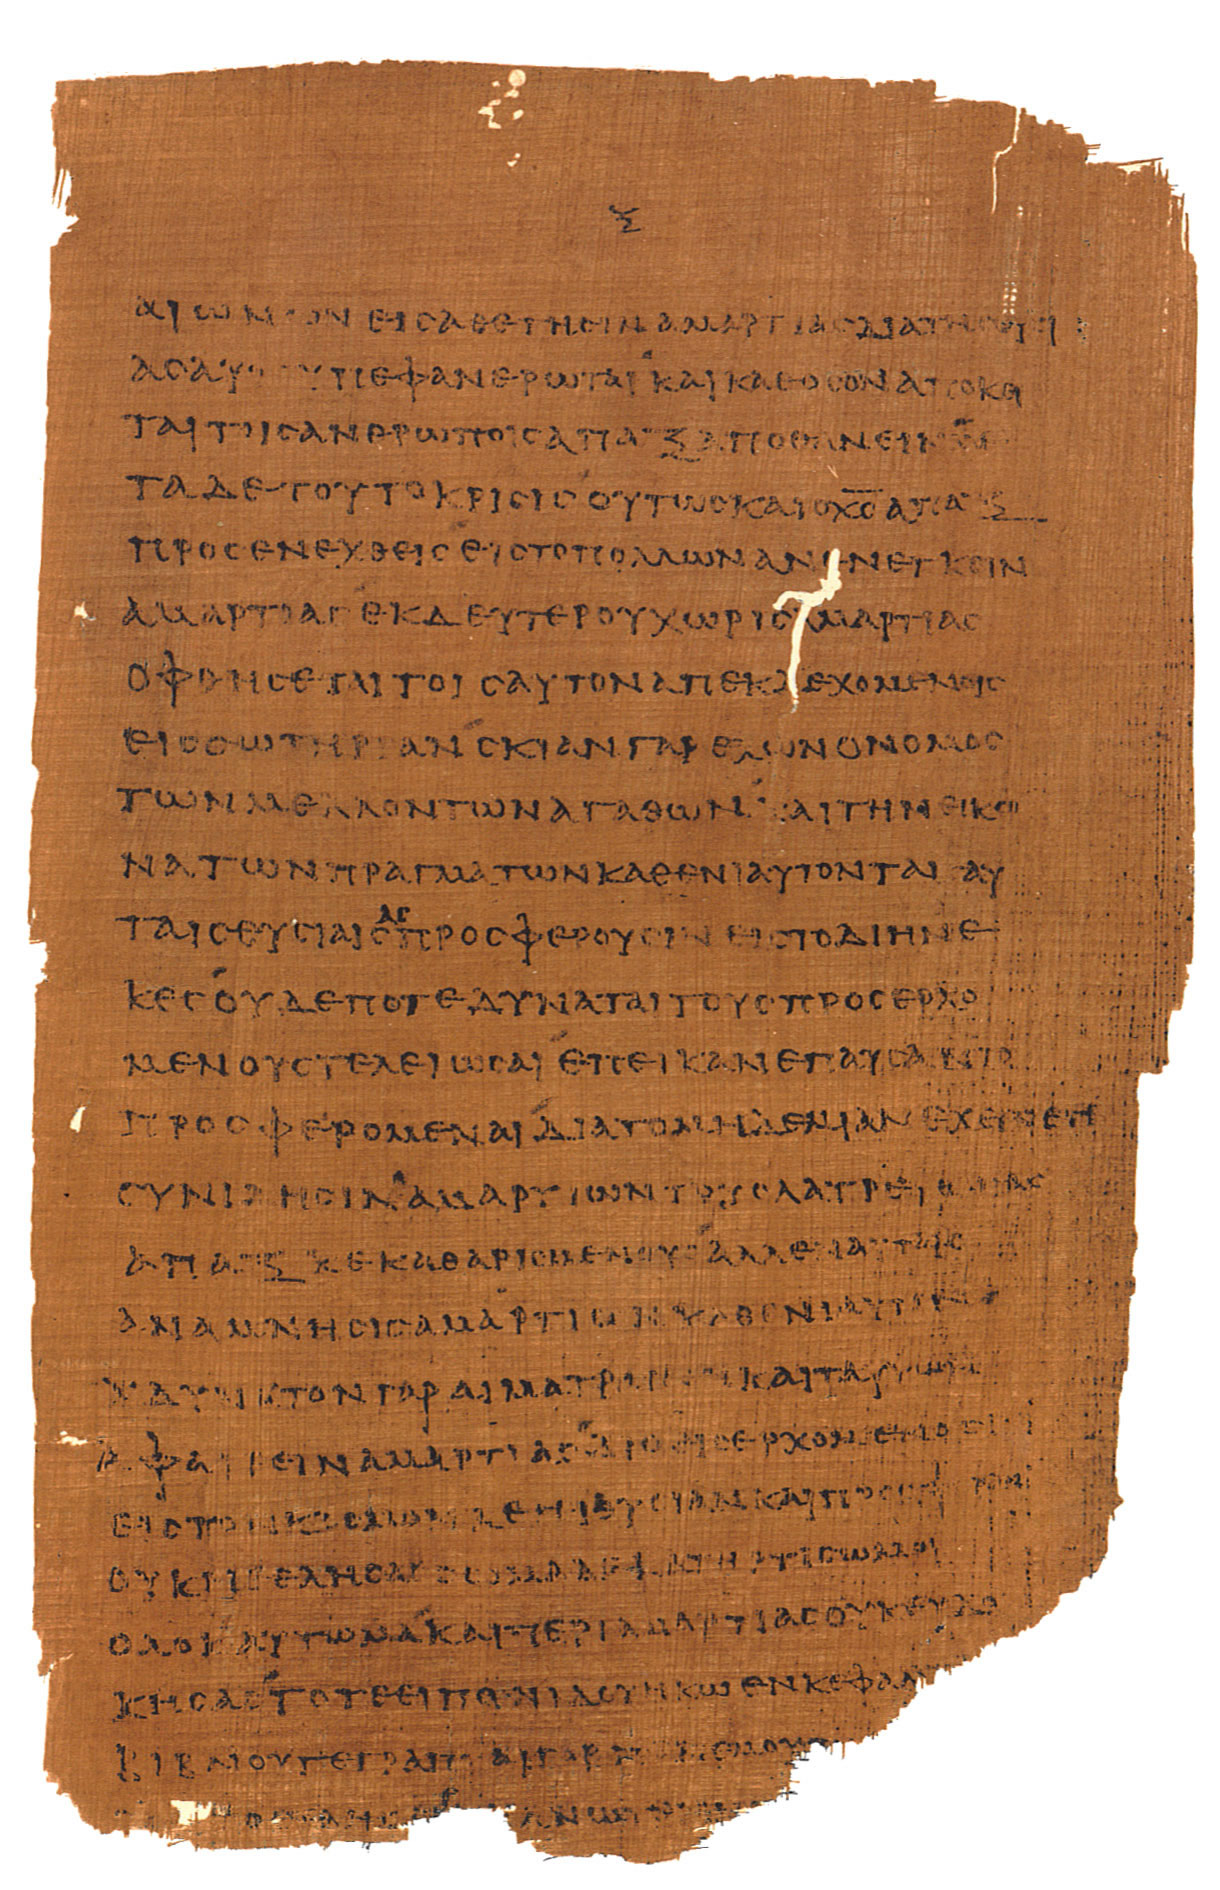 Ξ
ΑΙΩΝΩΝΕΙϹΑΘΕΤΗϹΙΝΑΜΑΡΤΙΑϹΔΙΑΤΗϹΘΥϹΙ
ΑϹΑΥΤΟΥΠΕΦΑΝΕΡΩΤΑΙΚΑΙΚΑΘΟϹΟΝΑΠΟΚΕΙ
ΤΑΙΤΟΙϹΑΝΘΡΩΠΟΙϹΑΠΑΞΑΠΟΘΑΝΕΙΝΜΕ
ΤΑΔΕΤΟΥΤΟΚΡΙϹΙϹΟΥΤΩϹΚΑΙΟΧ̅Ϲ̅ΑΠΑΞ
ΠΡΟϹΕΝΕΧΘΕΙϹΕΙϹΤΟΠΟΛΛΩΝΑΝΕΝΕΓΚΕΙΝ
ΑΜΑΡΤΙΑϹΕΚΔΕΥΤΕΡΟΥΧΩΡΙϹΑΜΑΡΤΙΑϹ
ΟΦΘΗϹΕΤΑΙΤΟΙϹΑΥΤΟΝΑΠΕΚΔΕΧΟΜΕΝΟΙϹ
ΕΙϹϹΩΤΗΡΙΑΝϹΚΙΑΝΓΑΡΕΧΩΝΟΝΟΜΟϹ
ΤΩΝΜΕΛΛΟΝΤΩΝΑΓΑΘΩΝΚΑΙΤΗΝΕΙΚΟ
ΝΑΤΩΝΠΡΑΓΜΑΤΩΝΚΑΘΕΝΙΑΥΤΟΝΤΑΙΑΥ
ΤΑΙϹΘΥϹΙΑΙϹΑϹΠΡΟϹΦΕΡΟΥϹΙΝΕΙϹΤΟΔΙΗΝΕ
ΚΕϹΟΥΔΕΠΟΤΕΔΥΝΑΤΑΙΤΟΥϹΠΡΟϹΕΡΧΟ
ΜΕΝΟΥϹΤΕΛΕΙΩϹΑΙΕΠΕΙΚΑΝΕΠΑΥϹΑΝΤΟ
ΠΡΟϹΦΕΡΟΜΕΝΑΙΔΙΑΤΟΜΗΔΕΜΙΑΝΕΧΕΙΝΕΤΙ
ϹΥΝΙΔΗϹΙΝΑΜΑΡΤΙΩΝΤΟΥϹΛΑΤΡΕΥΟΝΤΑϹ
ΑΠΑΞΚΕΚΑΘΑΡΙϹΜΕΝΟΥϹΑΛΛΕΝΑΥΤΑΙϹ
ΑΝΑΜΝΗϹΙϹΑΜΑΡΤΙΩΝΚΑΘΕΝΙΑΥΤΟΝΑ
ΔΥΝΑΤΟΝΓΑΡΑΙΜΑΤΡΑΓΩΝΚΑΙΤΑΥΡΩΝ
ΑΦΑΙΡΕΙΝΑΜΑΡΤΙΑϹΔΙΟΕΙϹΕΡΧΟΜΕΝΟϹ
ΕΙϹΤΟΝΚΟϹΜΟΝΛΕΓΕΙΘΥϹΙΑΝΚΑΙΠΡΟϹΦΟΡΑΝ
ΟΥΚΗΘΕΛΗϹΑϹϹΩΜΑΔΕΚΑΤΗΡΤΙϹΩΜΟΙ
ΟΛΟΚΑΥΤΩΜΑΚΑΙΠΕΡΙΑΜΑΡΤΙΑϹΟΥΚΕΥΔΟ
ΚΗϹΑϹΤΟΤΕΕΙΠΟΝΙΔΟΥΗΚΩΕΝΚΕΦΑΛ
ΒΙΒΛΙΟΥΓΕΓΡΑΠΤΑΙΓΑΡΠΕΡΙΕΜΟΥ